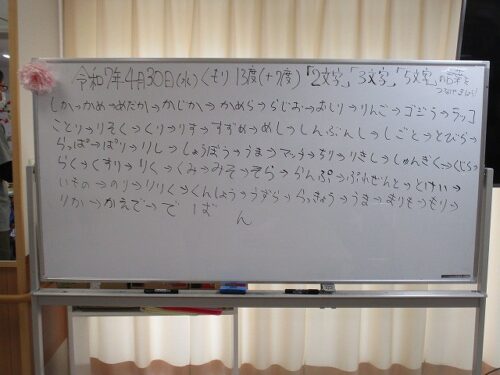 令和7年4月30日(水)くもり 13度(+7度)「2文字」「3文字」「5文字」の言葉
つなげましょう
しか→かめ→めだか→かじか→かめら→らじお→おしり→りんご→ゴジラ→ラッコ
ことり→りそく→くり→りす→すずめ→めし→しんぶんし→しごと→とびら→
らっぱ→ぱり→りし→しょうぼう→うま→マッチ→ちり→りきし→しゅんぎく→くじら→
らく→くすり→りく→くみ→みそ→そら→らんぷ→ぷれぜんと→とけい→
いもの→のり→りりく→くんしょう→うずら→らっきょう→うま→まりも→もり→
りか→かえで→で ば ん